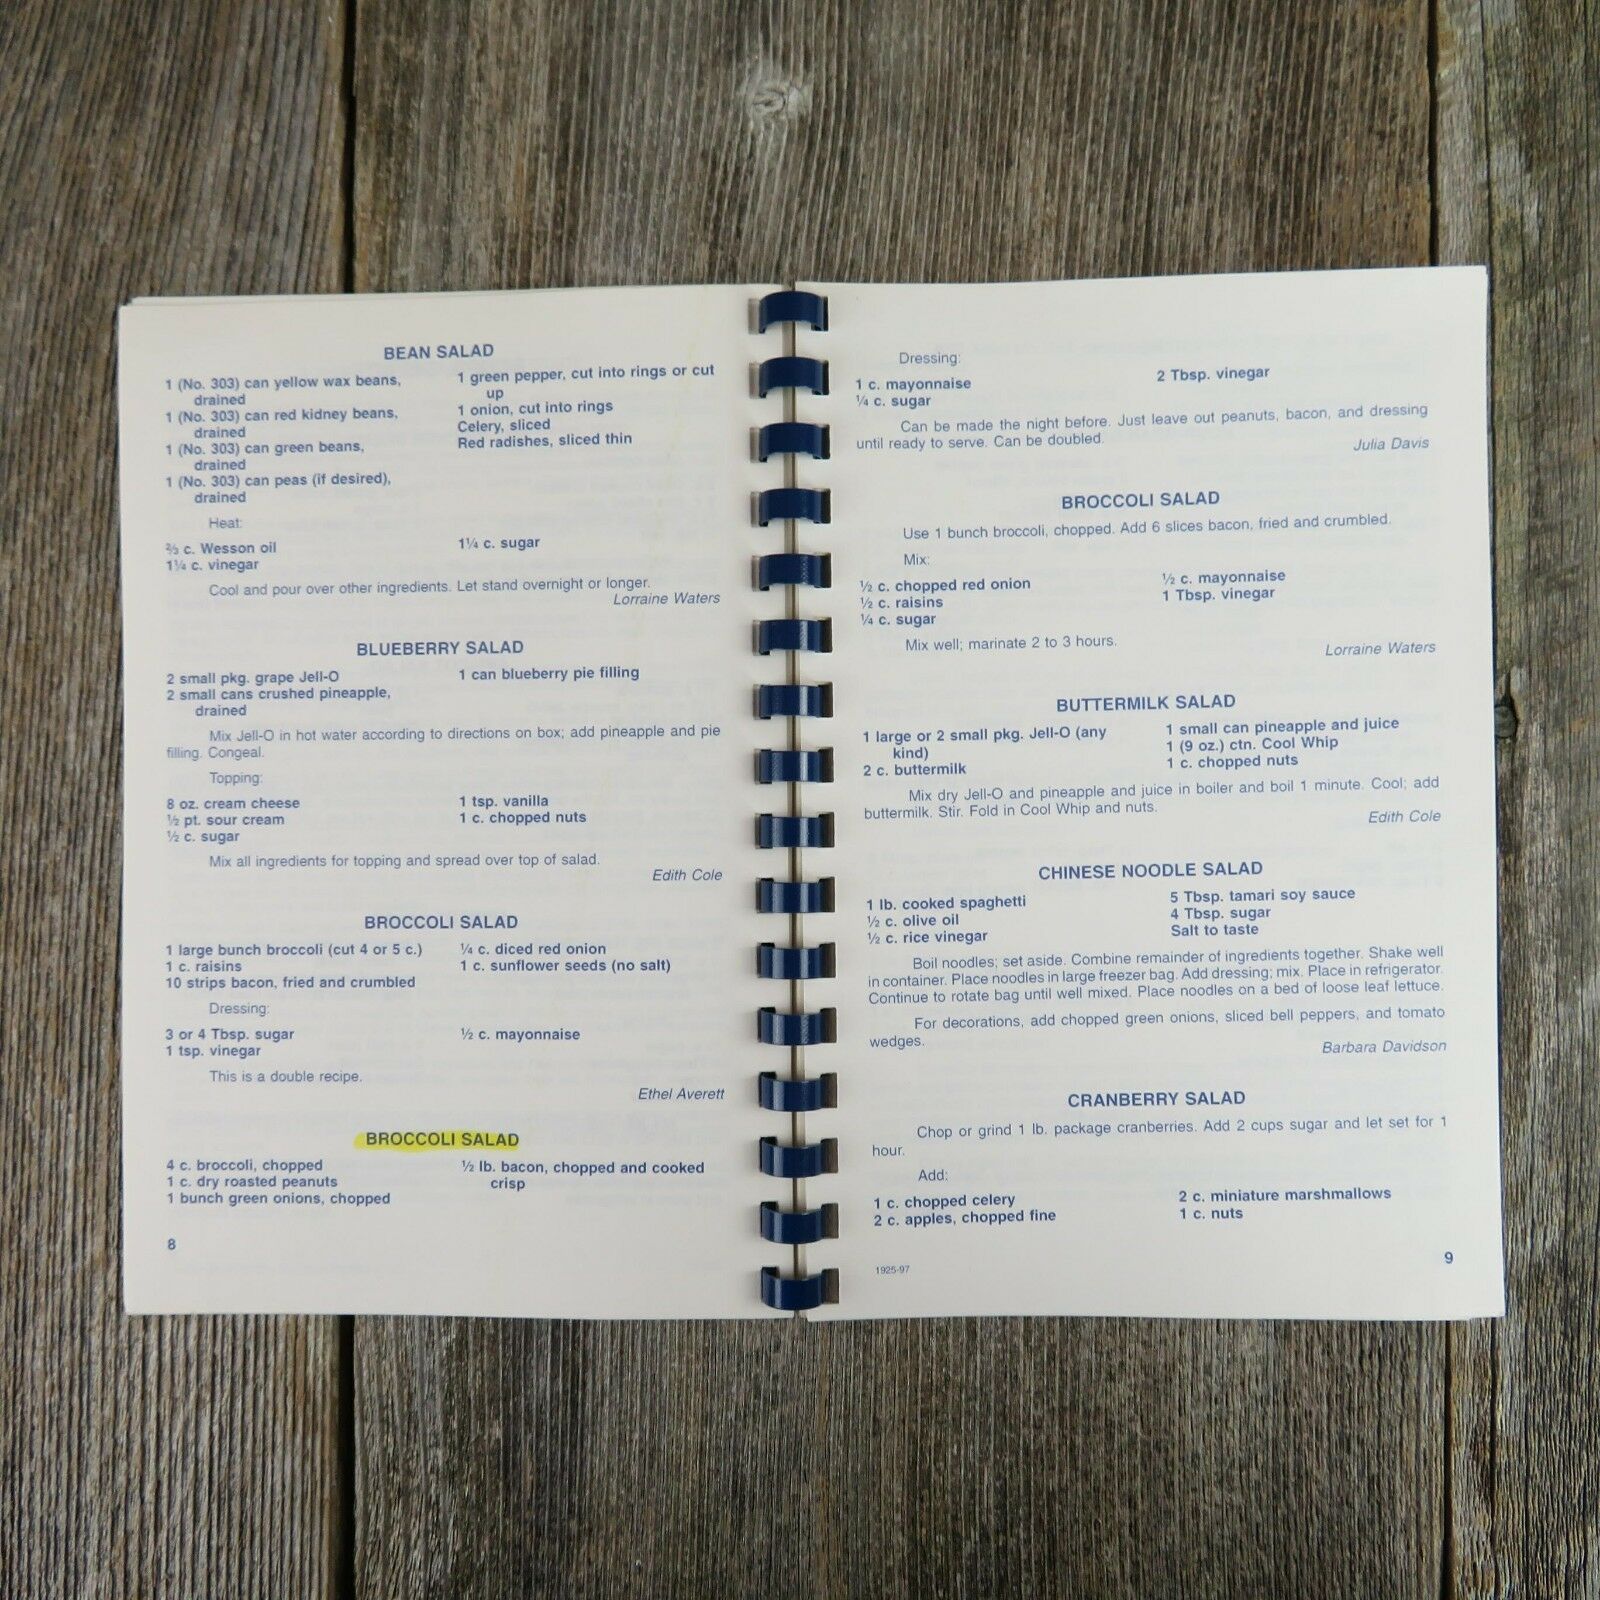 BEAN SALAD
1 (No. 303) can yellow wax beans,
drained
1 (No. 303) can red kidney beans,
drained
1 (No. 303) can green beans,
drained
1 (No. 303) can peas (if desired),
drained
1 green pepper, cut into rings or cut
up
1 onion, cut into rings
Celery, sliced
Red radishes, sliced thin
Heat:
⅔ c. Wesson oil
1¼ c. vinegar
1¼ c. sugar
Cool and pour over other ingredients. Let stand overnight or longer.
Lorraine Waters
BLUEBERRY SALAD
2 small pkg. grape Jell-O
2 small cans crushed pineapple,
drained
1 can blueberry pie filling
Mix Jell-O in hot water according to directions on box; add pineapple and pie
filling. Congeal.
Topping:
8 oz. cream cheese
½ pt. sour cream
½ c. sugar
1 tsp. vanilla
1 c. chopped nuts
Mix all ingredients for topping and spread over top of salad.
Edith Cole
BROCCOLI SALAD
1 large bunch broccoli (cut 4 or 5 c.)
1 c. raisins
10 strips bacon, fried and crumbled
¼ c. diced red onion
1 c. sunflower seeds (no salt)
Dressing:
3 or 4 Tbsp. sugar
1 tsp. vinegar
½ c. mayonnaise
This is a double recipe.
Ethel Averett
BROCCOLI SALAD
4 c. broccoli, chopped
1 c. dry roasted peanuts
1 bunch green onions, chopped
½ lb. bacon, chopped and cooked
crisp
8
Dressing:
1 c. mayonnaise
¼ c. sugar
2 Tbsp. vinegar
Can be made the night before. Just leave out peanuts, bacon, and dressing
until ready to serve. Can be doubled.
Julia Davis
BROCCOLI SALAD
Use 1 bunch broccoli, chopped. Add 6 slices bacon, fried and crumbled.
Mix:
½ c. chopped red onion
½ c. raisins
¼ c. sugar
½ c. mayonnaise
1 Tbsp. vinegar
Mix well; marinate 2 to 3 hours.
Lorraine Waters
BUTTERMILK SALAD
1 large or 2 small pkg. Jell-O (any
kind)
2 c. buttermilk
1 small can pineapple and juice
1 (9 oz.) ctn. Cool Whip
1 c. chopped nuts
Mix dry Jell-O and pineapple and juice in boiler and boil 1 minute. Cool; add
buttermilk. Stir. Fold in Cool Whip and nuts.
Edith Cole
CHINESE NOODLE SALAD
1 lb. cooked spaghetti
½ c. olive oil
½ c. rice vinegar
5 Tbsp. tamari soy sauce
4 Tbsp. sugar
Salt to taste
Boil noodles; set aside. Combine remainder of ingredients together. Shake well
in container. Place noodles in large freezer bag. Add dressing; mix. Place in refrigerator.
Continue to rotate bag until well mixed. Place noodles on a bed of loose leaf lettuce.
For decorations, add chopped green onions, sliced bell peppers, and tomato
wedges.
Barbara Davidson
CRANBERRY SALAD
Chop or grind 1 lb. package cranberries. Add 2 cups sugar and let set for 1
hour.
Add:
1 c. chopped celery
2 c. apples, chopped fine
2 c. miniature marshmallows
1 c. nuts
1925-97
9